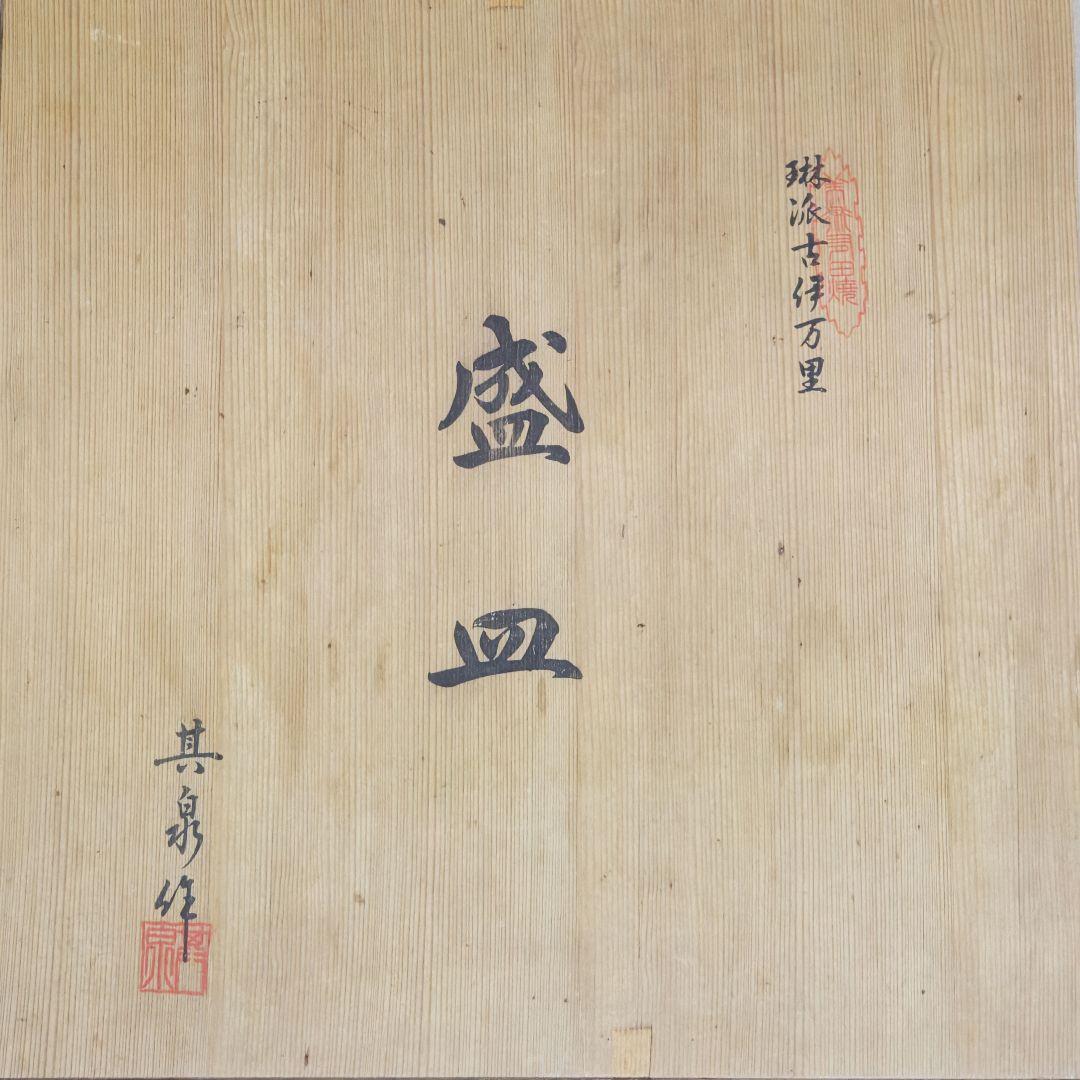 琳派古伊万里
盛皿
其泉作